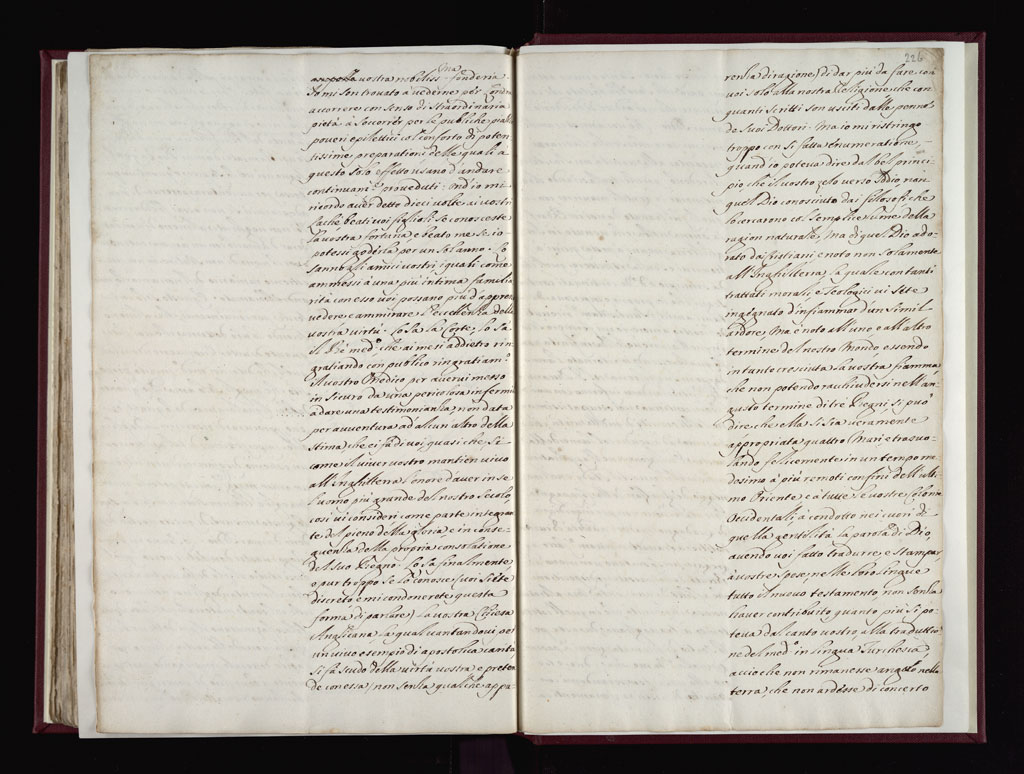 a vostra nobiliss.ma fonderia.
Io mi son trovato a vederne per Londra
accorrere con senso di straordinaria
pietà a soccorrer per le publiche piazze
poveri epilettici col conforto di poten-
tissime preparationi delle quali a
questo solo effetto usano d'andare
continuam.e proveduti. Ond'io mi
ricordo aver detto dieci volte ai vostri
Lachè beati voi figlioli se conosceste
la vostra fortuna e beato me se io
potessi goderla per un sol anno. Lo
sanno gli amici vostri, i quali come
ammessi a una più intima familia
rità con esso voi possano più d'appres
vedere e ammirare l'eccellenza della
vostra virtù. Lo sa la Corte, lo sa
il Rè med.o, che ai mesi addietro rin
gratiando con publico ringratiam.o
il vostro Medico per avervi messo
in sicuro da una pericolosa infermi
a dare una testimonianza, non data
per avventura ad alcun altro della
stima che ei fà di voi, quasi che, sì
come il viver vostro mantien vivo
all'Inghilterra l'onore d'aver in se
l'uomo più grande del nostro secolo,
così vi consideri come parte integran
te del pieno della gloria, e in conse-
guenza della propria consolatione
del suo Regno. Lo sa finalmente,
o pur troppo se lo conosce (voi siete
discreto e mi condonerete questa
forma di parlare) la vostra Chiesa
Anglicana la qual vantandovi per
un vivo esempio di apostolica carità
si fa scudo della virtù vostra e preten
de con essa (non senza qualche appa-
226
renza di ragione) di dar più da fare con
voi solo alla nostra Religione, che con
quanti scritti son usciti dalle penne
de suoi Dottori. Ma io mi ristringo
troppo con sì fatta enumeratione,
quand'io poteva dire dal bel princi
pio che il vostro zelo verso Iddio, non
quell'Dio conosciuto dai filosofi che
lo cercarono col semplice lume della
ragion naturale, ma di quel Dio ado-
rato dai fistiani è noto non solamente
all'Inghilterra, la quale con tanti
trattati morali, e teologici vi siete
ingegnato d'infiammar d'un simil
ardore, Ma è noto all'uno, e all'altro
termine del nostro Mondo, essendo
in tanto cresciuta la vostra fiamma
che non potendo racchiudersi nell'an
gusto termine di tre Regni si può
dire che ella si sia veramente
appropriata quattro Mari e trasvo-
lando felicemente in un tempo me
desimo a più remoti confini dell'ulti
mo Oriente e a tutte le vostre colonie
Occidentali, à condotto nei cuori di
quella gentilità la parola di Dio,
avendo voi fatto tradurre, e stampar,
à vostre spese, nelle loro lingue
tutto il nuovo testamento, non senza
haver contribuito quanto più si po-
teva dal canto vostro, alla traduttio
ne del med.o in lingua Turchesca,
acciò che non rimanesse angolo nella
terra, che non ardesse di concerto